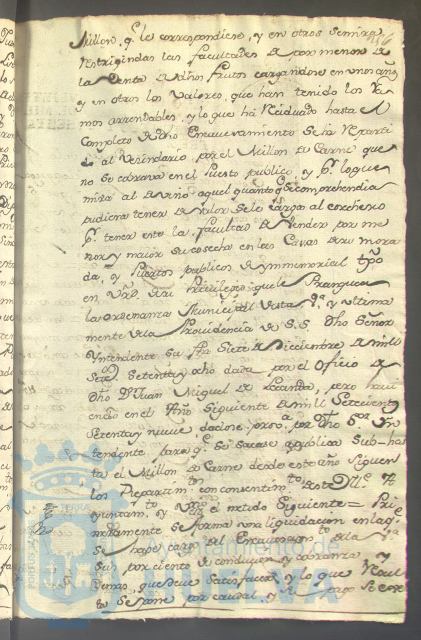 Millon, q.e le correspondiere, y en otros se mira
Restringidas las facultades de por menor de
la Venta de dhos frutos cargandose en unos años
y en otros los Valores, que han tenido los Ra
mos arrendables, y lo que ha Residuado hasta el
Completo de dho Encavezamiento se ha Reparti
do al Vecindario, por el Millon de Carne que
no se cobrava en el Puesto publico, y p.r lo que
mira al de vino aquel quanto q.e se comprehendia
pudiera tener de valor se le cargo al cosechero
p.r tener este la facultad de Vender por me
nor y maior su cosecha en las Casas de su mora
da, y Puestos publicos de ymmemorial tpõ
en de su Privilegio que le franquea
la ordenanza Municipal de esta V.a y ultima
mente de la Providencia de S. S. dho Señor
Yntendente su fha Siete de Diciembre de mill
Setez.s Setenta y ocho dada por el Oficio de
dho D.n Juan Miguel de pero havi
endo en el Año Siguiente de mill Setecientos
Setenta y nueve por dho S.or Yn
tendente para q.e se sacase a publica Subhas
ta el Millon de Carne desde este año siguen
los Repartim.tos con consentim.to de este Y.lle A
yuntam.to y el metodo Siguiente = Pri
meramente se forma una liquidacion en la q.e
se hace cargo del Encavezam.to de la V.a
su por ciento de conducion y cobranza y
demas, que deve satisfacer, y lo que
se pone por caudal, y
Ayuntamiento de